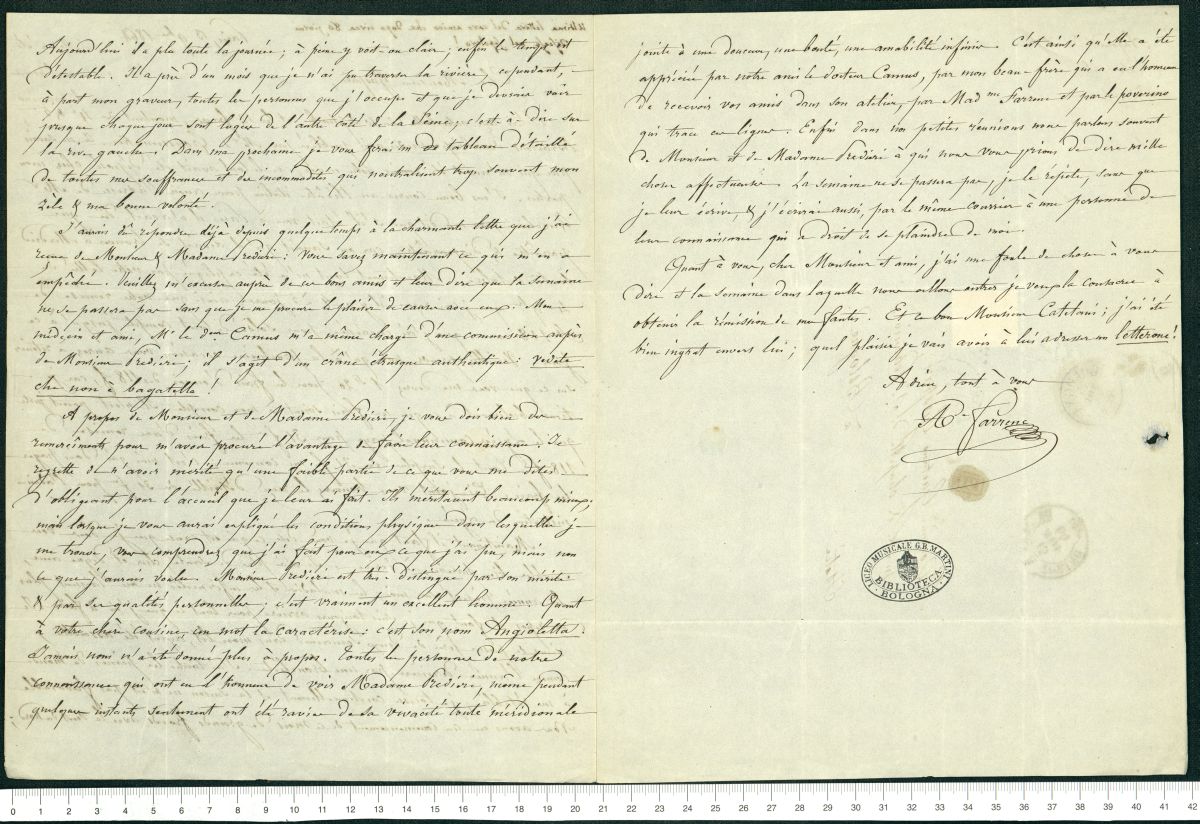 Aujourd'hui il a plu toute la journée; à peine y voit-on clair; enfin le temps est
détestable. Il a près d'un mois que je n'ai pu traverser la rivière, cependant,
à part mon graveur, toutes les personnes que j'occupe et que je devrais voir
presque chaque jour sont logées de l'autre côté de la Seine, c'est-à-dire sur
la rive gauche. Dans ma prochaine je vous ferai un tableau détaillé
de toutes mes souffrances et des incommodités qui neutralisent trop souvent mon
zèle & ma bonne volonté.
J'aurais dû répondre déjà depuis quelque temps à la charmante lettre que j'ai
reçue de Monsieur & Madame Prediéri: Vous savez maintenant ce qui m'en a
empêché. Veuillez m'excuser auprès de ces bons amis et leur dire que la semaine
ne se passera pas sans que je me procure le plaisir de causer avec eux. Mon
médecin et ami, Mr le dteur Camus m'a même chargé d'une commission auprès
de Monsieur Prediéri; il s'agit d'un crâne étrusque authentique: vedete
che non è bagatella!
A propos de Monsieur et de Madame Prediéri, je vous dois bien des
remerciments pour m'avoir procuré l'avantage de faire leur connaissance. Je
regrette de n'avoir mérité qu'une faible partie de ce que vous me dites
d'obligeant pour l'accueil que je leur ai fait. Ils méritaient beaucoup mieux,
mais lorsque je vous aurai expliqué les conditions physiques dans lesquelles je
me trouve, vous comprendrez que j'ai fait pour eux ce que j'ai pu, mais non
ce que j'aurais voulu. Monsieur Prediéri est très-distingué par son mérite
& par ses qualités personnelles; c'est vraiment un excellent homme. Quant
à votre chère cousine, un mot la caractérise: c'est son nom Angioletta.
Jamais nom n'a été donné plus à propos. Toutes les personnes de notre
connaissance qui ont eu l'honneur de voir Madame Prediéri, même pendant
quelques instants seulement ont été ravies de sa vivacité toute méridionale
jointe à une douceur, une bonté, une amabilité infinies. C'est ainsi qu'elle a été
appréciée par notre ami le docteur Camus, par mon beau-frère qui a eu l'honneur
de recevoir vos amis dans son atelier, par Madme Farrenc et par le poverino
qui trace ces lignes. Enfin dans nos petites réunions nous parlons souvent
de Monsieur et de Madame Prediéri à qui nous vous prions de dire mille
choses affectueuses. La semaine ne se passera pas, je le répète, sans que
je leur écrive, & j'écrirai aussi, par le même courrier à une personne de
leur connaissance qui a droit de se plaindre de moi.
Quant à vous, cher Monsieur et ami, j'ai une foule de choses à vous
dire et la semaine dans laquelle nous allons entrer je veux la consacrer à
obtenir la rémission de mes fautes. Et ce bon Monsieur Catelani; j'ai été
bien ingrat envers lui: quel plaisir je vais avoir à lui adresser un letterone!
Adieu, tout à vous
A. Farrenc
LICEO MUSICALE G.B. MARTINI
BIBLIOTECA
BOLOGNA